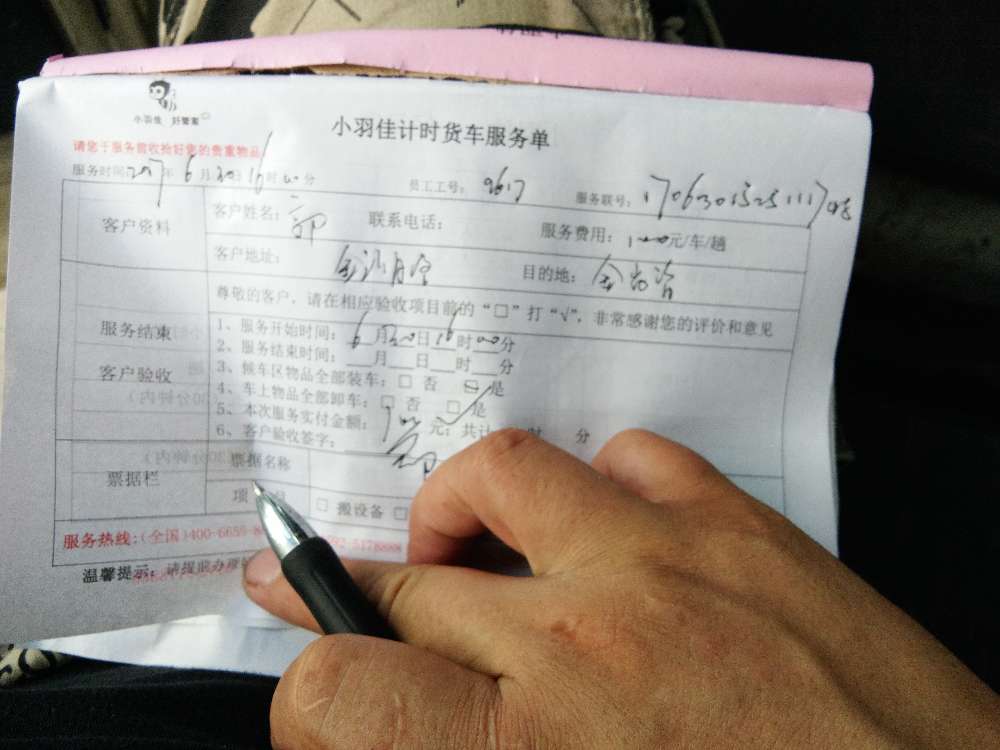 小羽佳 好管家
小羽佳计时货车服务单
请您于服务前收拾好您的贵重物品
服务时间: 2017年 6月 30日 16时 00分 员工工号: 9617 服务联号:
客户资料 客户姓名: 联系电话: 服务费用: 100元/车/趟
客户地址: 目的地: 金尚
尊敬的客户,请在相应验收项目前的“□”打“√”,非常感谢您的评价和意见
服务结束
客户验收
1、服务开始时间: 6月30日16时00分
2、服务结束时间: 月 日 时 分
3、候车区物品全部装车: □ 否 □ 是
4、车上物品全部卸车: □ 否 □ 是
5、本次服务实付金额: 元; 共计 时 分
6、客户验收签字:
票据栏 票据名称
项 目 □ 搬设备 □
服务热线:(全国)400-6655-8 592-5178888
温馨提示: 请提前办理